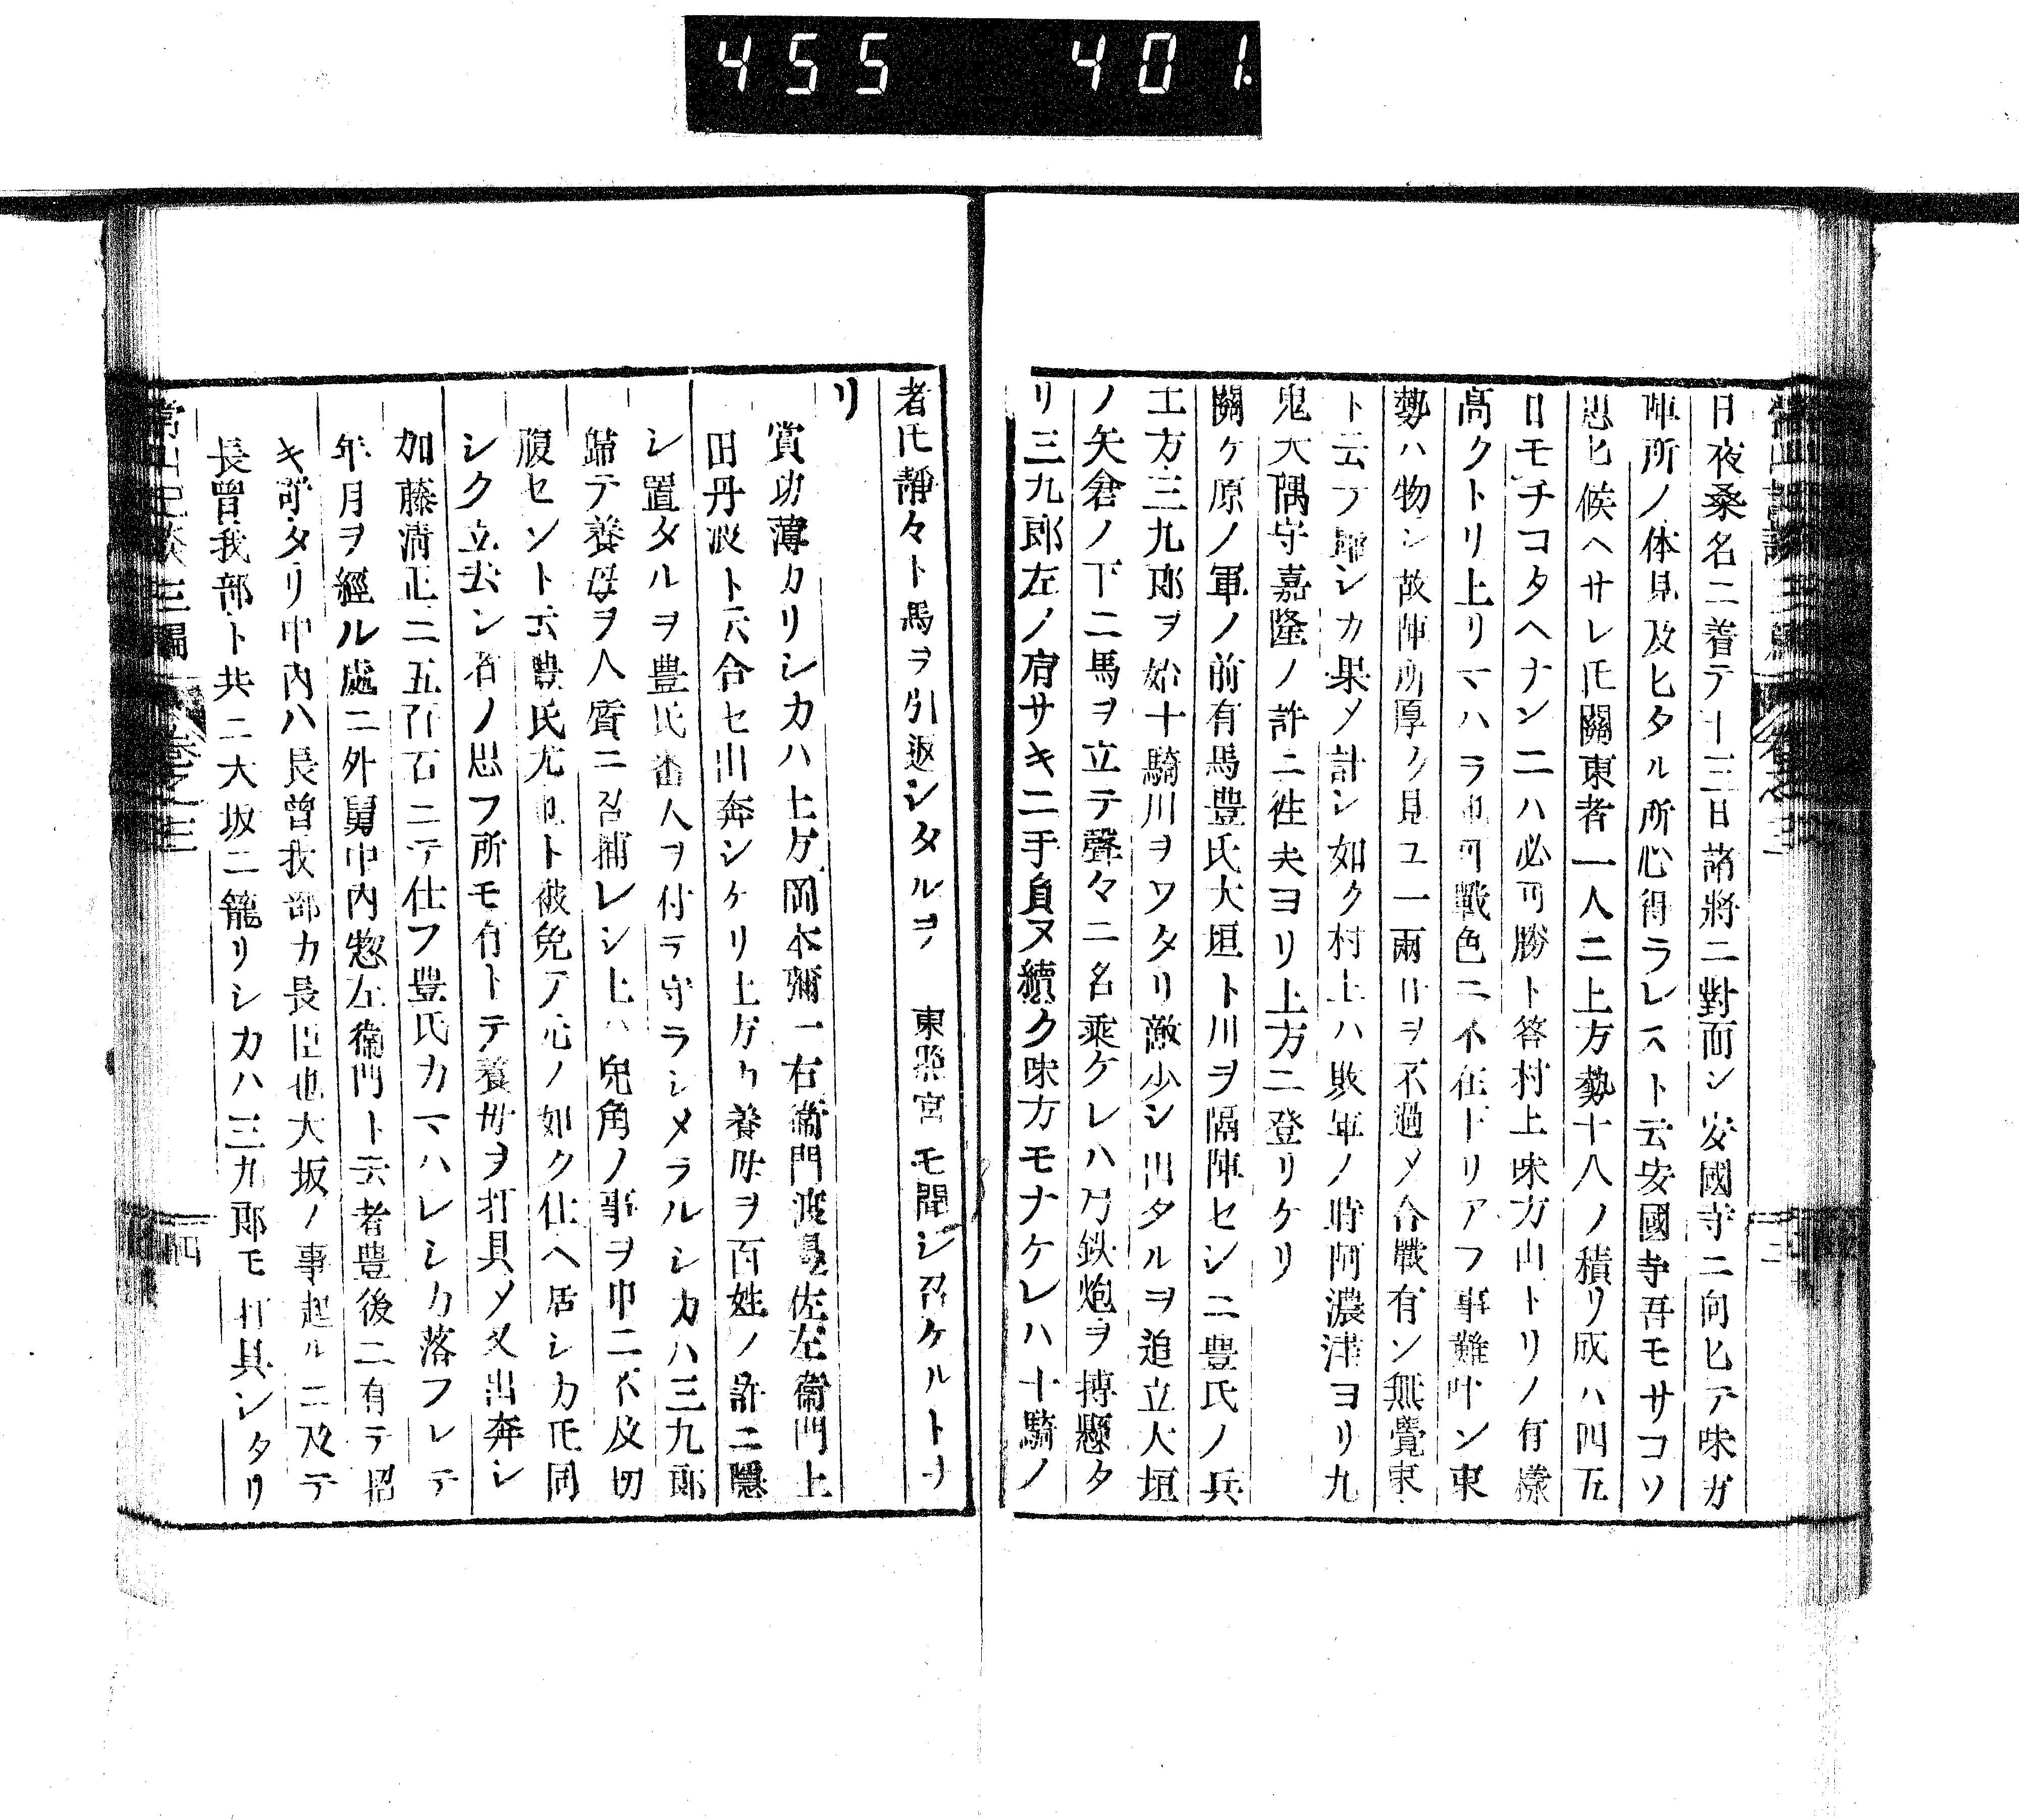 455 401
日夜桑名ニ着テ十三日諸將ニ對面シ安國寺ニ向ヒテ味ガ
陣所ノ体見及ヒタル所心得ラレスト云安國寺吾モサコソ
思ヒ候ヘサレ𪜈關東者一人ニ上方勢十人ノ積リ成ハ四五
日モチコタヘナンニハ必可勝ト答村上味方山トリノ有樣
髙クトリ上リマハラ也可戰色ニ不在下リアフ事難叶ン東
勢ハ物シ故陣所厚ク見ユ一兩日ヲ不過メ合戰有ン無覺束
ト云フ歸シカ果メ計シ如ク村上ハ敗軍ノ時阿濃津ヨリ九
鬼大隅守嘉隆ノ許ニ徃夫ヨリ上方ニ登リケリ
關ケ原ノ軍ノ前有馬豊氏大垣ト川ヲ隔陣セシニ豊氏ノ兵
士方三九郎ヲ始十騎川ヲワタリ敵少シ出タルヲ追立大垣
ノ矢倉ノ下ニ馬ヲ立テ聲々ニ名乘ケレハ乃鉄炮ヲ摶懸タ
リ三九郎左ノ肩サキニ手負ヌ續ク味方モナケレハ十騎ノ
者𪜈靜々ト馬ヲ引返シタルヲ 東照宮モ聞シ召ケルトナ
リ
賞功薄カリシカハ土方岡本彌一右衞門渡邊佐左衞門上
田丹波ト云合セ出奔シケリ土方カ養母ヲ百姓ノ許ニ隱
シ置タルヲ豊氏番人ヲ付テ守ラシメラルシカハ三九郎
歸テ養母ヲ人質ニ召捕レシ上ハ兎角ノ事ヲ申ニ不及切
腹セント云豊氏尤也ト被免テ元ノ如ク仕ヘ居シカ𪜈同
シク立去シ者ノ思フ所モ有トテ養母ヲ打具メ又出奔シ
加藤淸正ニ五百石ニテ仕フ豊氏カマハレシカ落フレテ
年月ヲ經ル處ニ外舅中内惣左衞門ト云者豊後ニ有テ招
キ寄タリ中内ハ長曾我部カ長臣也大坂ノ事起ルニ及テ
長曾我部ト共ニ大坂ニ籠リシカハ三九郎モ打具シタリ
常山紀談三編 卷之三 四